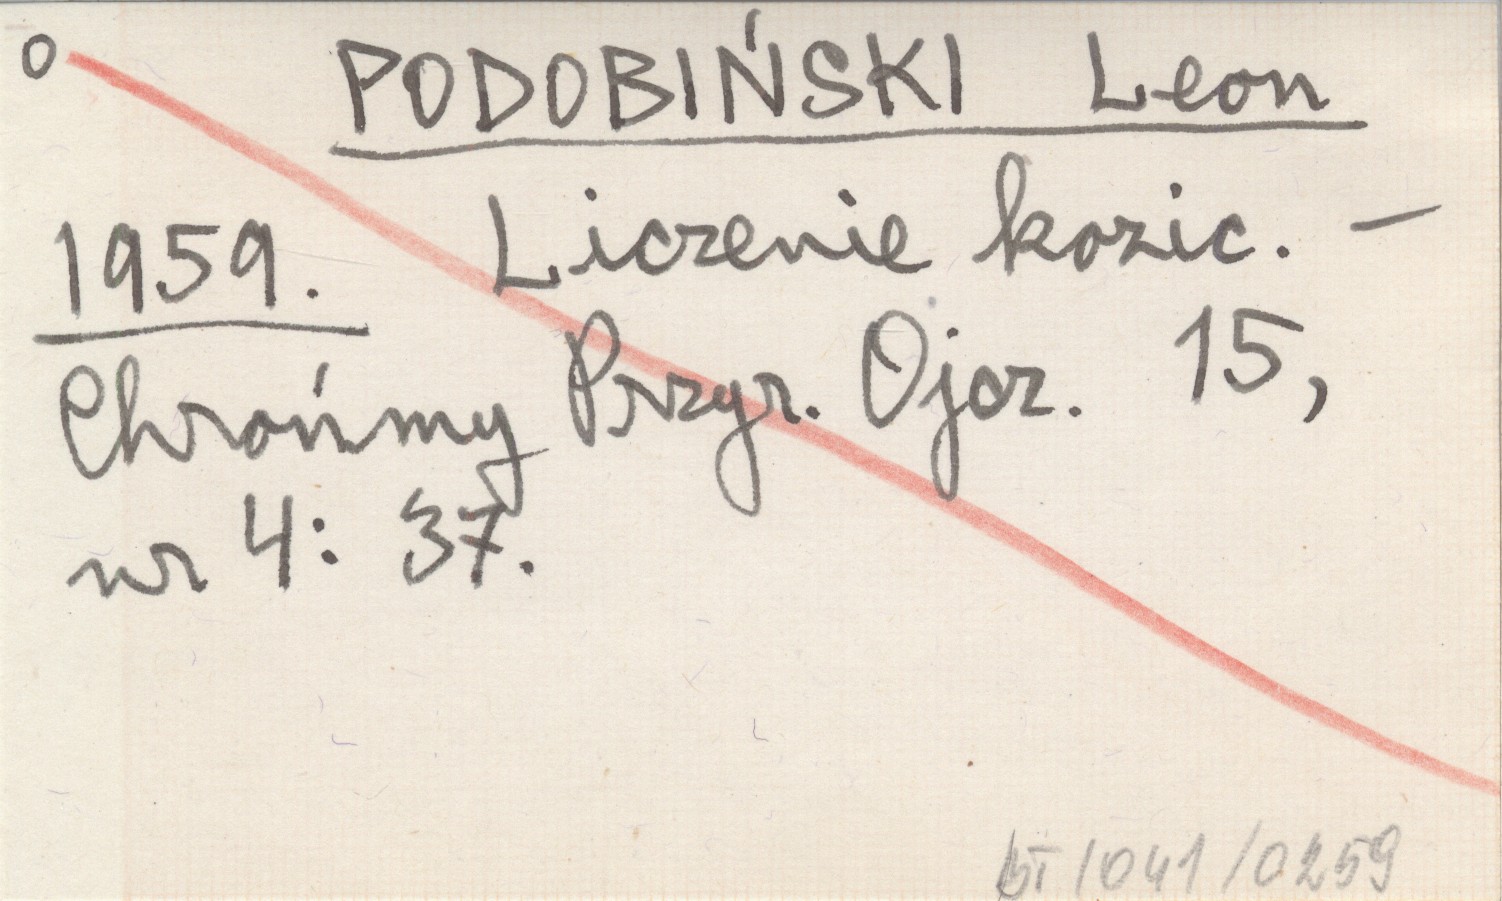 o PODOBIŃSKI Leon
1959. Liczenie kozic. –
Chrońmy Przyr. Ojcz. 15,
nr 4: 37.
BT/041/0259